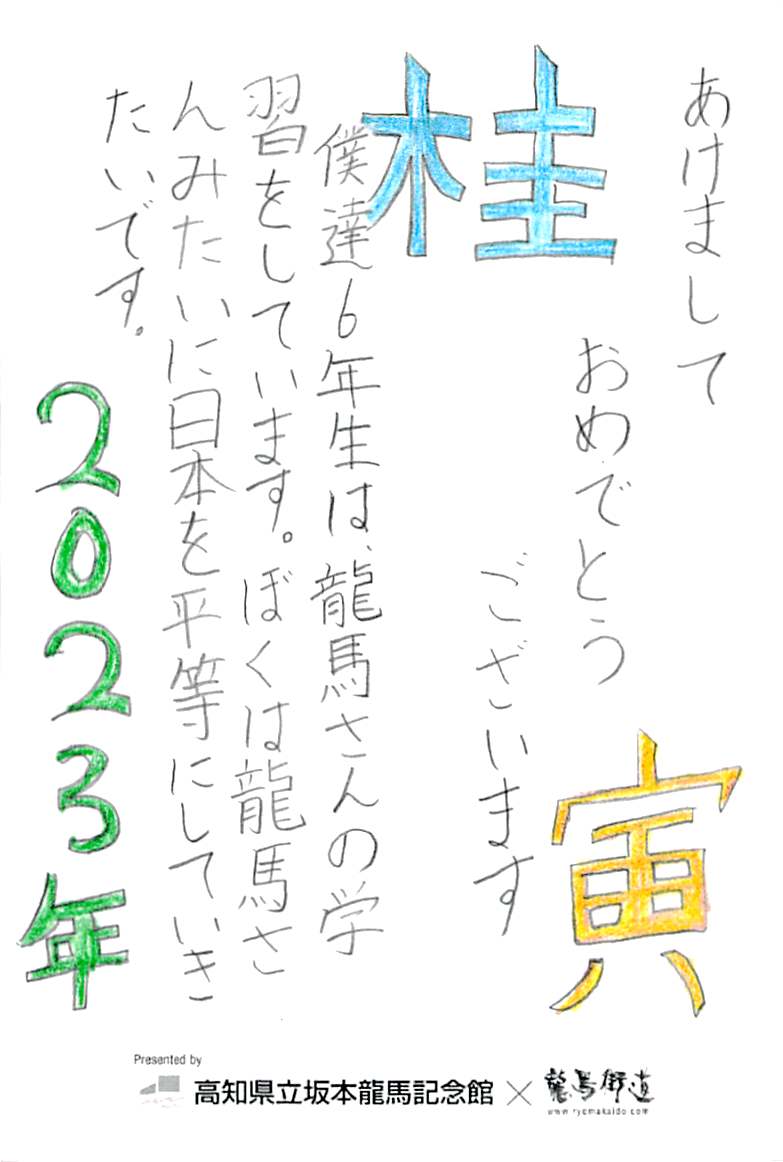 あけまして
おめでとう
ございます
寅
桂
僕達6年生は、龍馬さんの学
習をしています。ぼくは龍馬さ
んみたいに日本を平等にしていき
たいです。
2023年
Presented by
高知県立坂本龍馬記念館×龍馬街道
www.ryomakaido.com